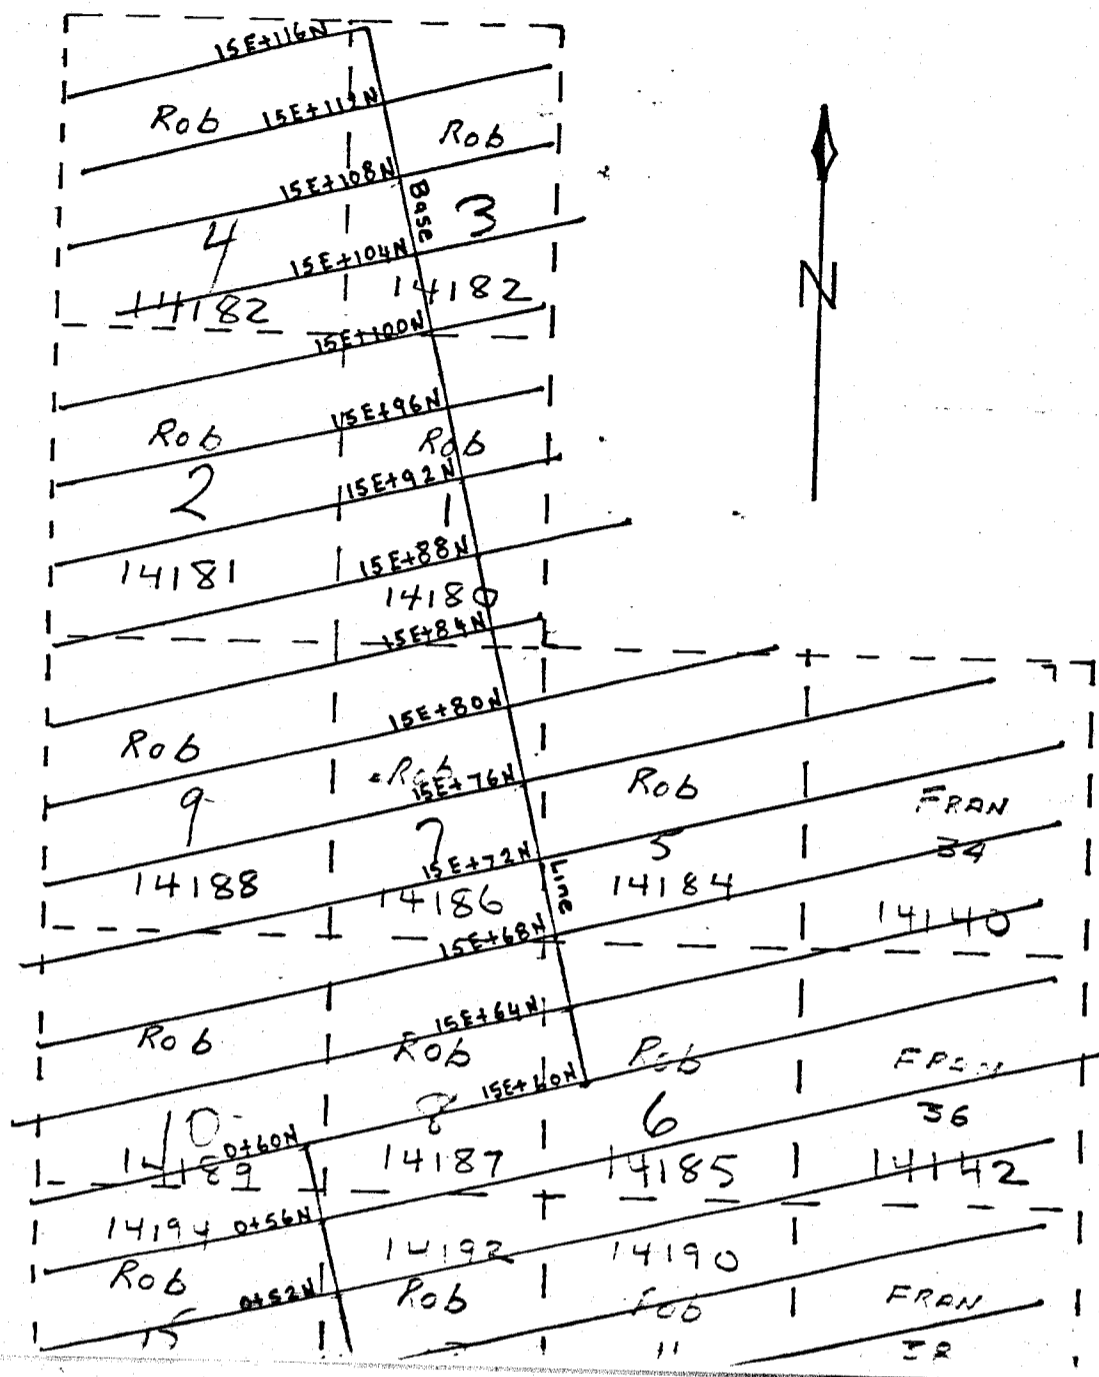 15E+116N
Rob
15E+112N
Rob
15E+108N
Base
3
4
15E+104N
14182
14182
15E+100N
15E+96N
Rob
Rob
2
15E+92N
1
14181
15E+88N
14180
15E+84N
15E+80N
Rob
Rob
15E+76N
Rob
FRAN
9
7
5
34
15E+72N
Line
14188
14186
14184
14140
15E+68N
15E+64N
Rob
Rob
Rob
FRAN
15E+60N
10
8
6
36
0+60N
14189
14187
14185
14142
14194
0+56N
14192
14190
Rob
0+52N
Rob
Rob
FRAN
15
11
N